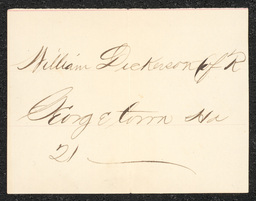 William Dickerson of R
Georgetown
21